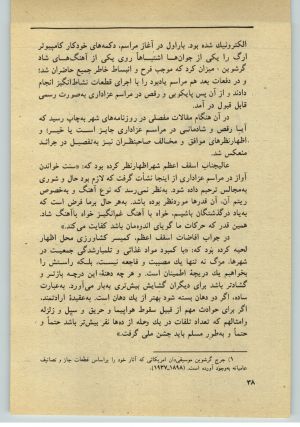 الکترونیک شده بود. یاراول در آغاز مراسم، دکمه‌های خودکار کامپیوتر
ارگ را یکی از جوان‌ها اشتباهاً روی یکی از آهنگ‌های شاد
گرشوین۱ میزان کرد که موجب فرح و انبساط خاطر جمیع حاضران شد؛
و در دفعات بعد هم مراسم یادبود را با اجرای قطعات نشاط‌انگیز انجام
دادند و از آن پس پایکوبی و رقص در مراسم عزاداری به‌صورت رسمی
قابل قبول در آمد.
در آن هنگام مقالات مفصلی در روزنامه‌های شهر به‌چاپ رسید که
آیا رقص و شادمانی در مراسم عزاداری جایز است یا خیر؛ و
اظهارنظرهای موافق و مخالف صاحبنظران نیز به‌تفصیل در جرائد
منعکس شد.
عالیجناب اسقف اعظم شهراظهارنظر کرده بود که: «سنت خواندن
آواز در مراسم عزاداری از اینجا نشأت گرفت که لازم بود حال و شوری
به‌مجالس ترحیم داده شود. به‌نظر نمی‌رسد که نوع آهنگ و به‌خصوص
ریتم آن، آن قدرها موردنظر بوده باشد. به‌هر حال برما فرض است که
به‌یاد درگذشتگان باشیم، خواه با آهنگ غم‌انگیز خواه باآهنگ شاد.
همین قدر که حرکات ما گویای اندوهمان باشد کفایت می‌کند.»
در جواب افاضات اسقف اعظم، کمیسر کشاورزی محل اظهار
لحیه کرده بود که: «با کمبود مواد غذائی و تلمبارشدگی جمعیت در
شهرها، مرگ نه تنها یک مصیبت و فاجعه نیست، بلکه راستش را
بخواهیم یک دریچهٔ اطمینان است. و هر چه دهنهٔ این دریچه بازتر و
گشادتر باشد برای دیگران گشایش بیش‌تری به‌بار می‌آورد. به‌عبارت
ساده، اگر دو دهان بسته شود بهتر از یک دهان است. به‌عقیدهٔ ارادتمند،
اگر برای حوادث مهم از قبیل سقوط هواپیما و حریق و سیل و زلزله
وامثالهم که تعداد تلفات در یک وهله از ده‌ها نفر بیش‌تر باشد حتماً و
حتماً و به‌طور مسلم باید جشن ملی گرفت.»
۱) جرج گرشوین موسیقی‌دان امریکائی که آثار خود را براساس قطعات جاز و تصانیف
عامیانه به‌وجود آورده است. (۱۸۹۸ـ۱۹۳۷)
۳۸